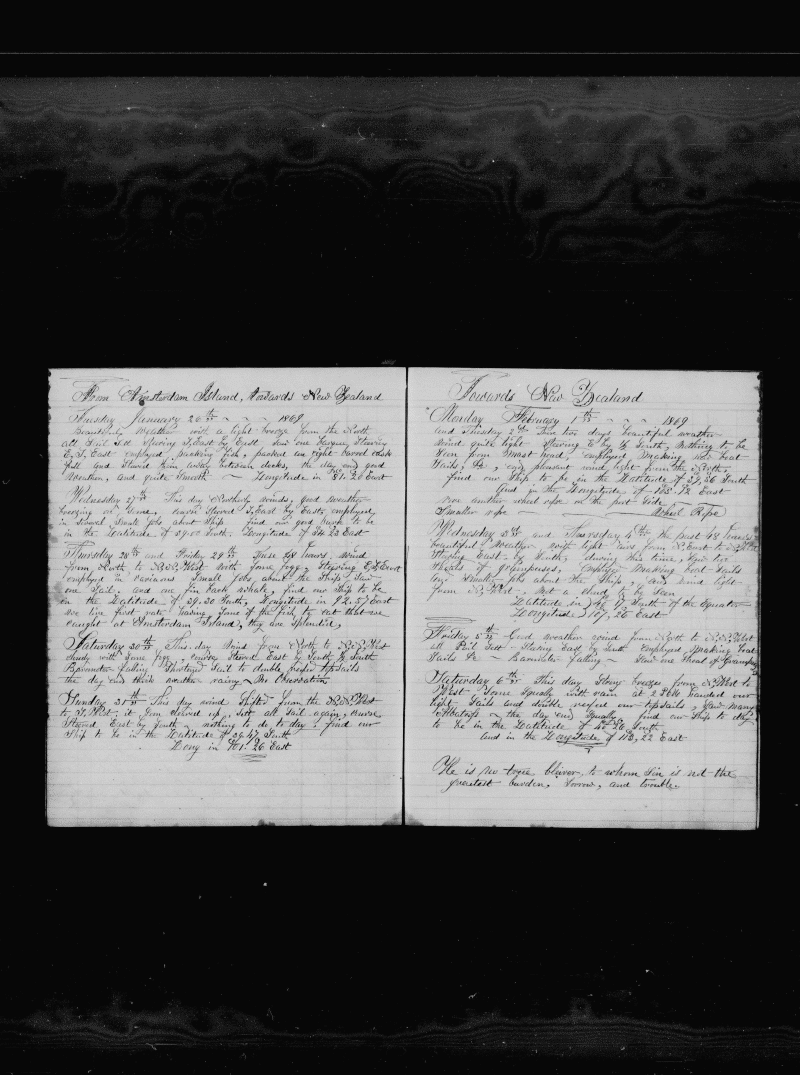 From Amsterdam Island, towards New Zealand
Tuesday January 26th 1869
Beautiful weather with a light breeze from the North
all sail set Steering S, East by East Saw one Barque, Steering
E, S, East employed, packing fish, packed an eight barrel cask
full and Stowed them away between decks, the day end good
Weather, and quite Smooth ~ Longitude in 81.20 East
Wednesday 27th This day Northerly winds, good weather
breezing on Some, Steered S, East by East, employed
in Several Small jobs about Ship find our good bark to be
in the Latitude of 39.00 South. Longitude of 84.23 East
Thursday 28th and Friday 29th These 48 hours, wind
from North to N,N,West with Some fogg, Steering E,S,East
employed in various Small jobs about the Ship, Saw
one Sail, and one fin back whale, find our Ship to be
in the Latitude of 39.30 South, Longitude in 92.57 East
we live first rate having Some of the fish, to eat that we
caught at Amsterdam Island, they are Splendid,
Saturday 30th This day Wind from North to N,N,West
cloudy with Some fogg, course Steered East by South ½ South
Barometer falling Shortened Sail to double reefed topsails
the day end thick weather rainy, No Observation
Sunday 31st This day wind Shifted from the N,N,West
to S,West, it soon cleared up, Sett all Sail again, course
Steered East by South, nothing to do to day, find our
Ship to be in the Latitude of 39.47 South
Long in 101.26 East
Towards New Zealand
Monday February 1st 1869
and Tuesday 2nd This two days beautiful weather
wind quite light Steering E by S ½ South, Nothing to be
Seen from Mast head, employed Making boat
Sails, &c, end pleasant wind light from the North,
find our Ship to be in the Latitude of 39.36 South
and in the Longitude of 105.12 East
rove another wheel rope on the port Side
Smaller rope Wheel Rope
Wednesday 3rd and Thursday 4th the past 48 hours
beautiful Weather, with light airs from N,East to N,West
Steering East, by South, during this time, Saw two
Sheals of grampuses, employed Making boat Sails
and Small jobs about the Ship, end wind light
from N,West, Not a cloud to be Seen
Latitude in South of the Equator
Longitude 107,26 East
Friday 5th Good weather wind from North to N,N,West
all Sail Sett Steering East by South employed Making boat
Sails &c Barometer falling Saw one Sheal of Grampuses
Saturday 6th This day Strong breezes from N,West to
West Some Squally with rain at 2 P.M. handed our
light Sails and double reefed our topsails, Saw many
Albatross the day end Squally find our Ship to day
to be in the Latitude of South
and in the Longitude of 113,22 East
He is no true believer, to whom Sin is not the
greatest burden, Sorrow, and trouble.